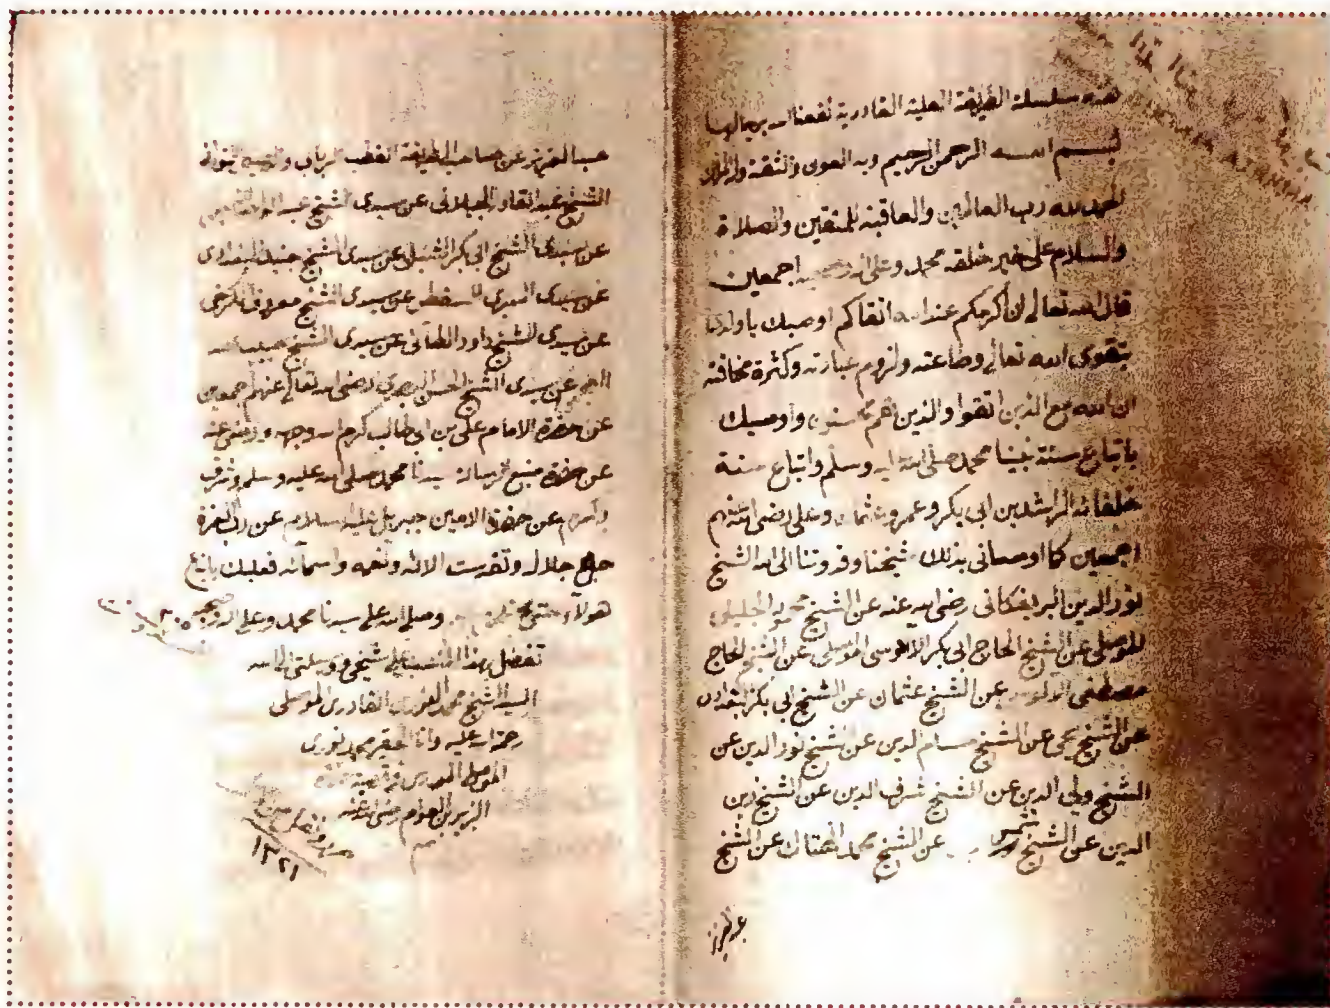 هذه سلسلة الطريقة العلية القادرية نفعنا الله برجالها
بسم الله الرحمن الرحيم وبه العون والثقة
الحمد لله رب العالمين والعاقبة للمتقين والصلاة
والسلام على خير خلقه محمد وعلى اله وصحبه اجمعين
قال الله تعالى ان اكرمكم عند الله اتقاكم اوصيك يا ولدي
بتقوى الله تعالى وطاعته ولزوم عبادته وكثرة مخافته
ان الله مع الذين اتقوا والذين هم محسنون واوصيك
باتباع سنة نبينا محمد صلى الله عليه وسلم واتباع سنة
خلفائه الراشدين ابي بكر وعمر وعثمان وعلي رضي الله عنهم
اجمعين كما اوصاني بذلك شيخنا وقدوتنا الى الله الشيخ
نور الدين البريفكاني رضي الله عنه عن الشيخ محمود الجليلي
الموصلي عن الشيخ الحاج ابي بكر الالوسي الموصلي عن الشيخ الحاج
مصطفى عن الشيخ عثمان عن الشيخ ابي بكر البغدادي
عن الشيخ يحيى عن الشيخ حسام الدين عن الشيخ نور الدين عن
الشيخ ولي الدين عن الشيخ شرف الدين عن الشيخ زين
الدين عن الشيخ شمس عن الشيخ محمد الهتاك عن الشيخ
عبد العزيز
عبد العزيز عن صاحب الطريقة القطب الرباني
الشيخ عبد القادر الجيلاني عن سيدي الشيخ
عن سيدي الشيخ ابي بكر الشبلي عن سيدي الشيخ جنيد البغدادي
عن سيدي السري السقطي عن سيدي الشيخ معروف الكرخي
عن سيدي الشيخ داود الطائي عن سيدي الشيخ حبيب
العجمي عن سيدي الشيخ الحسن البصري رضي الله تعالى عنهم اجمعين
عن حضرة الامام علي بن ابي طالب كرم الله وجهه ورضي عنه
عن حضرة منبع الرسالة سيدنا محمد صلى الله عليه وسلم وشرف
وكرم عن حضرة الامين جبريل عليه السلام عن رب العزة
جل جلاله وتقدست الائه ونعمه واسمائه فعليك باتباع
هولاء وصلى الله على سيدنا محمد وعلى اله وصحبه
تفضل بهذا شيخي ووسيلتي الى الله
السيد الشيخ محمد النوري القادري الموصلي
رحمة الله عليه وانا الحقير محمد نوري
الموصلي المدرس
الزبير بن العوام رضي الله عنه
١٣٢١